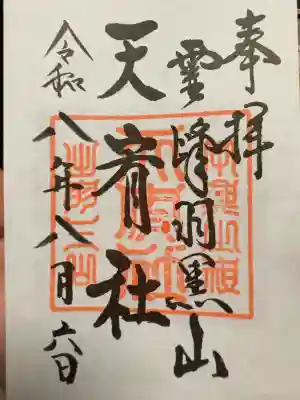 奉拝
霊峰羽黒山
天宥社
令和八年八月六日